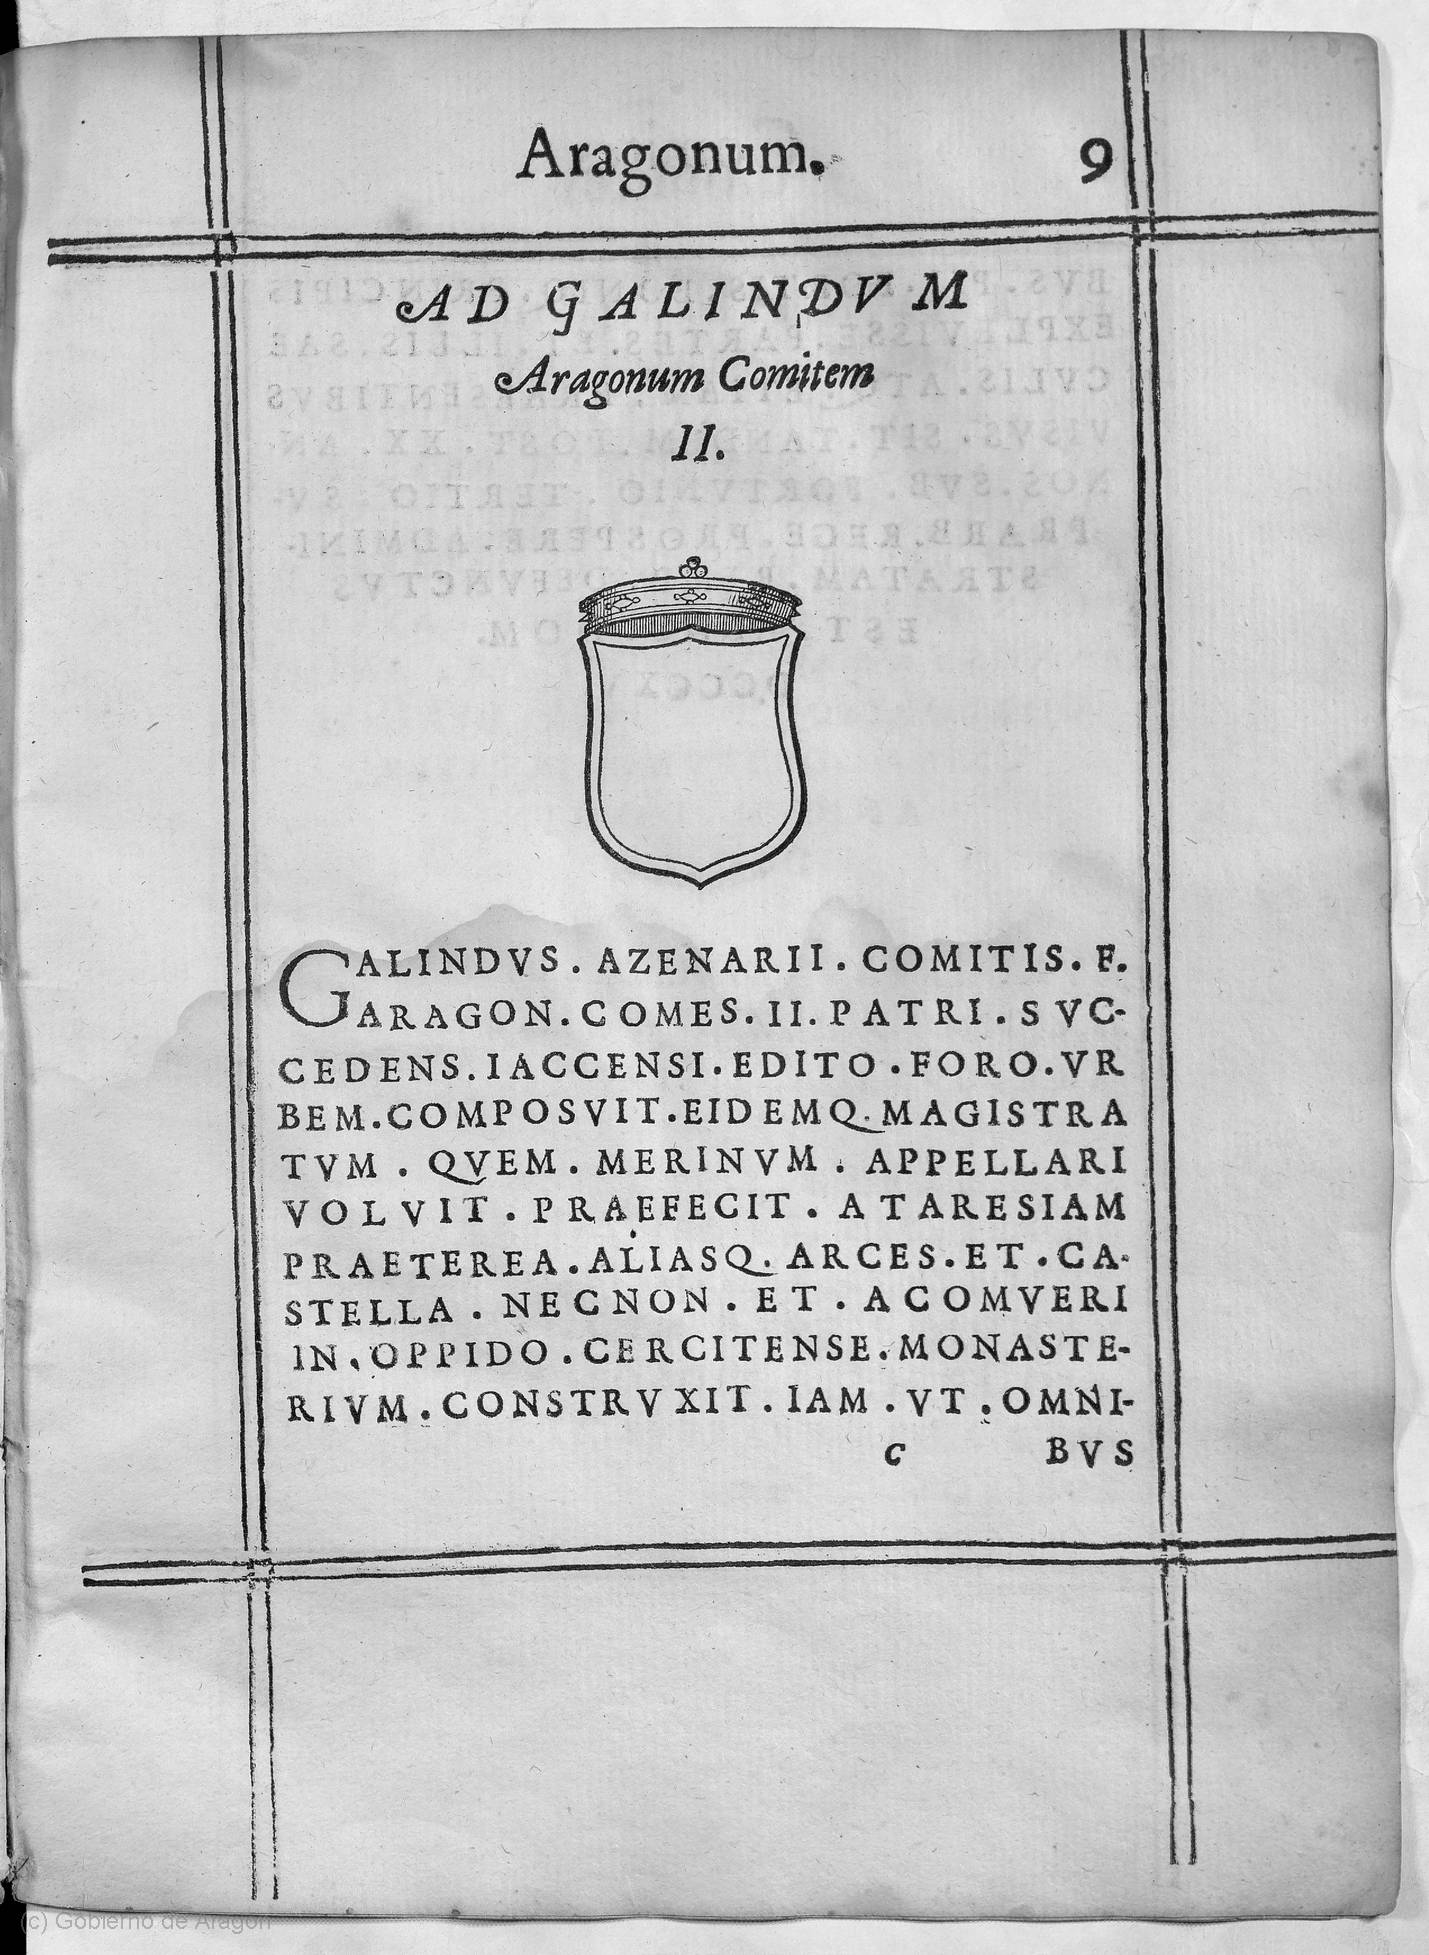 Aragonum. 9
AD GALINDVM
Aragonum Comitem
II.
GALINDVS. AZENARII. COMITIS. F.
ARAGON. COMES. II. PATRI. SVC-
CEDENS. IACCENSI. EDITO. FORO. VR
BEM. COMPOSVIT. EIDEMQ. MAGISTRA
TVM. QVEM. MERINVM. APPELLARI
VOLVIT. PRAEFECIT. ATARESIAM
PRAETEREA. ALIASQ. ARCES. ET. CA-
STELLA. NECNON. ET. ACOMVERI
IN. OPPIDO. CERCITENSE. MONASTE-
RIVM. CONSTRVXIT. IAM. VT. OMNI-
C BVS
(c) Gobierno de Aragón